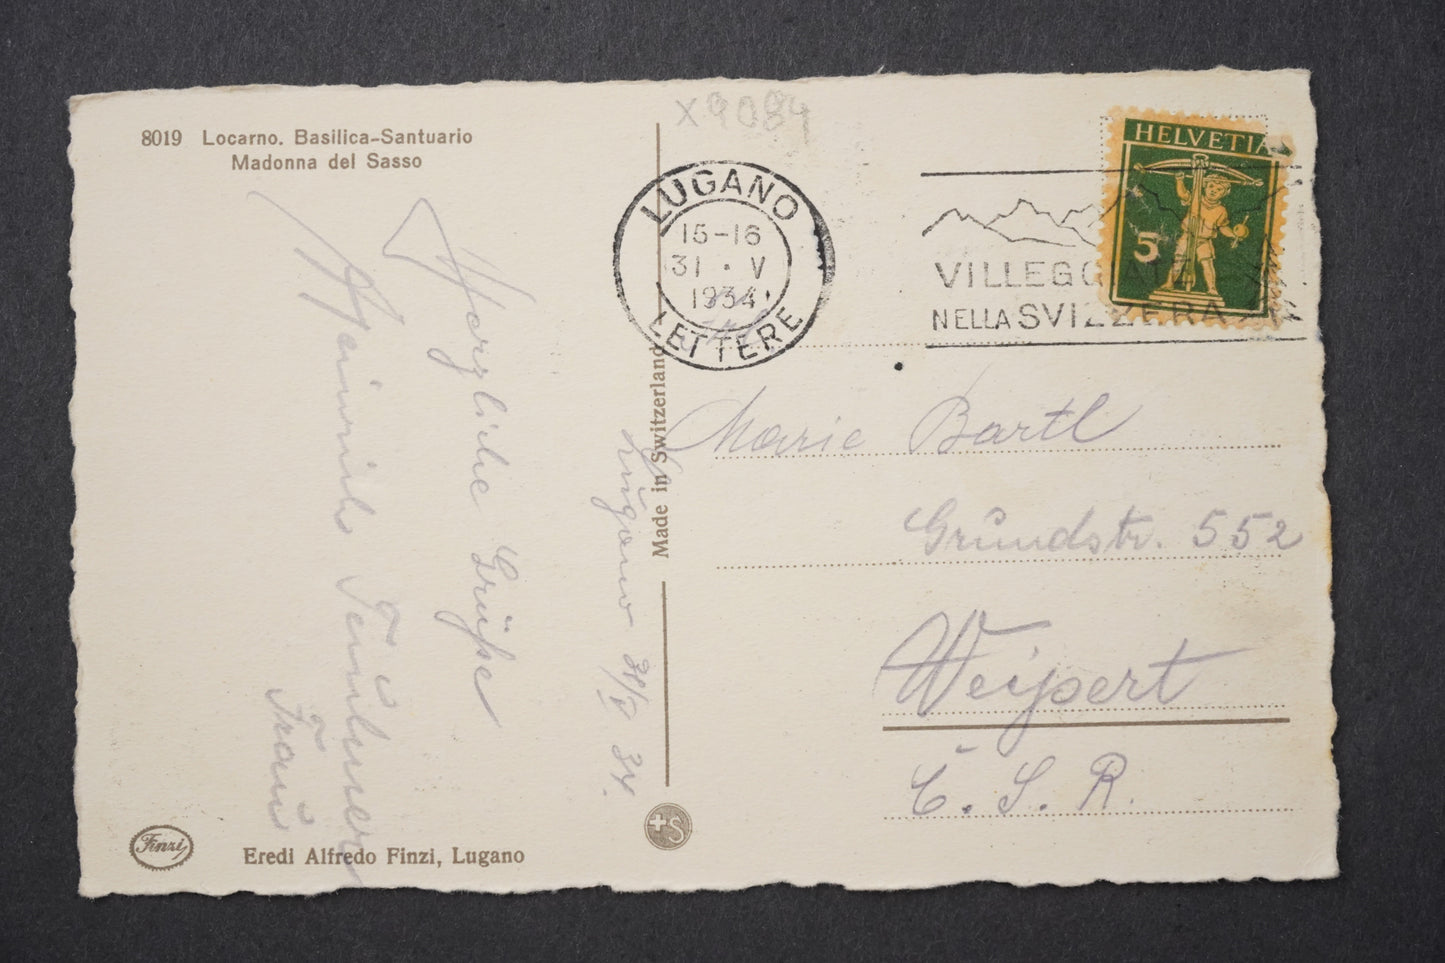 X9084
8019 Locarno. Basilica-Santuario
Madonna del Sasso
LUGANO
15-16
31 · V
1934
LETTERE
VILLEGGIATE
NELLA SVIZZERA
HELVETIA
5
Made in Switzerland
Lugano 31/V 34.
Herzliche Grüße
Frau
Marie Bartl
Grundstr. 552
Weipert
Č. S. R.
Finzi
Eredi Alfredo Finzi, Lugano
+S